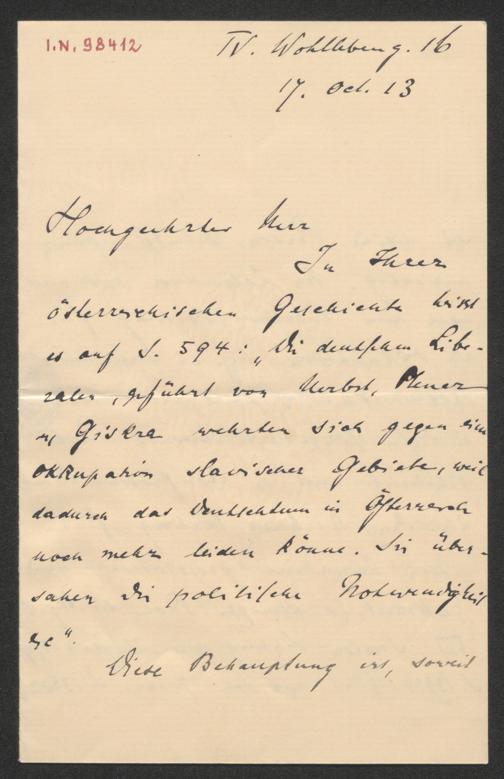 I.N. 98412
IV. Wohllebeng. 16
17. Oct. 13
Hochgeehrter Herr
In Ihrer
österreichischen Geschichte heisst
es auf S. 594: „Die deutschen Libe-
ralen, geführt von Herbst, Plener
u Giskra wehrten sich gegen eine
Okkupation slavischer Gebiete, weil
dadurch das Deutschtum in Österreich
noch mehr leiden könne. Sie über-
sahen die politische Nothwendigkeit
etc".
Diese Behauptung ist, soweit